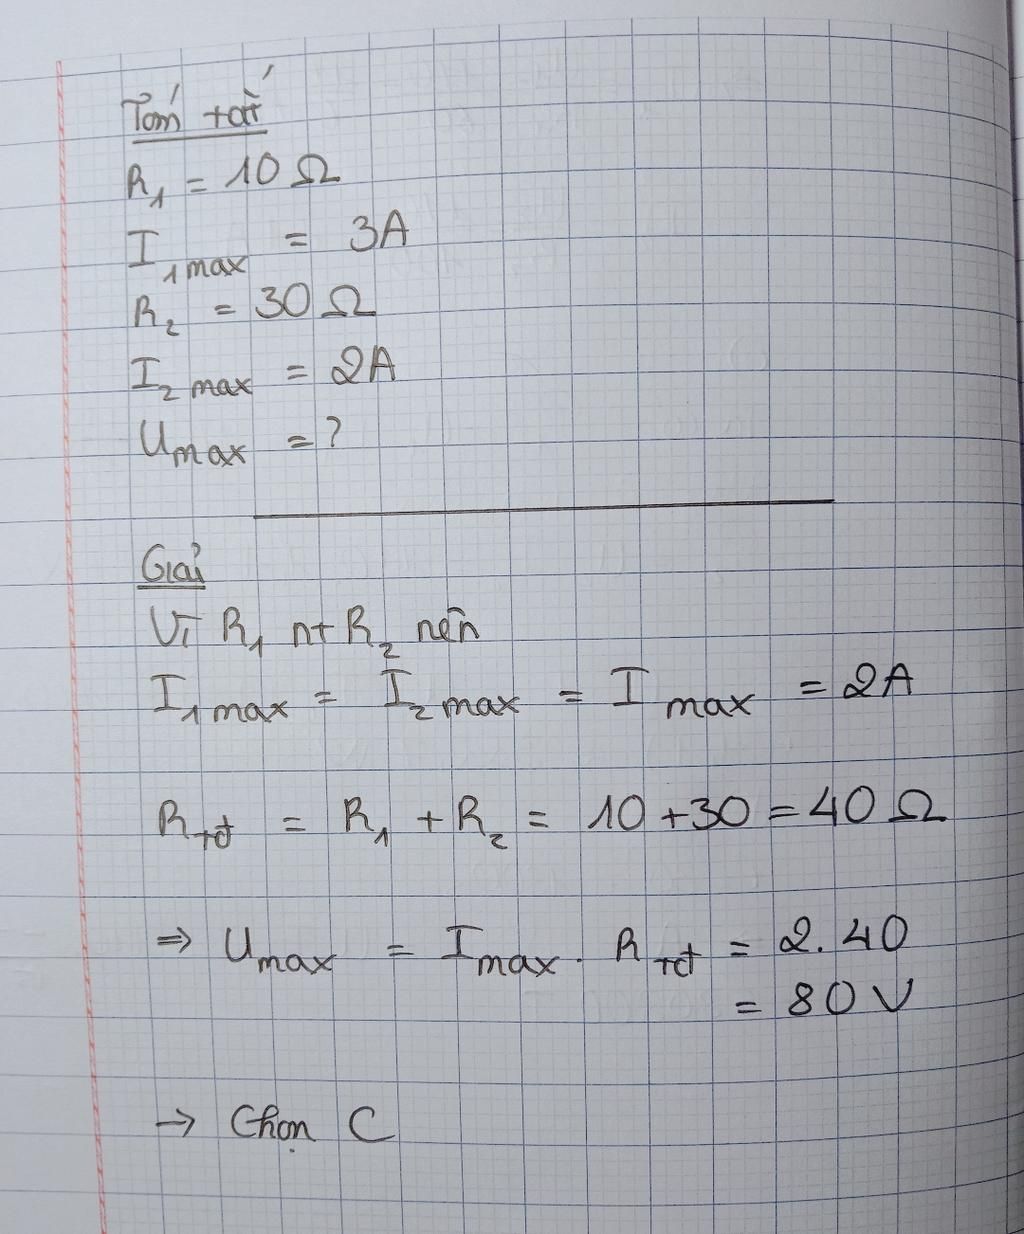 Tóm tắt
R₁ = 10 Ω
I₁ max = 3A
R₂ = 30 Ω
I₂ max = 2A
Umax = ?
Giải
Vì R₁ nt R₂ nên
I₁ max = I₂ max = I max = 2A
Rtđ = R₁ + R₂ = 10 + 30 = 40 Ω
=> Umax = Imax . Rtđ = 2.40
= 80 V
→ Chọn C